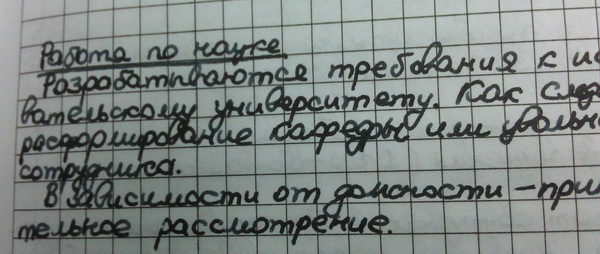 Работа по науке
Разрабатываются требования к ис
вательскому университету. Как след
расформирование кафедры или уволь
сотрудника.
В зависимости от должности – при
тельное рассмотрение.